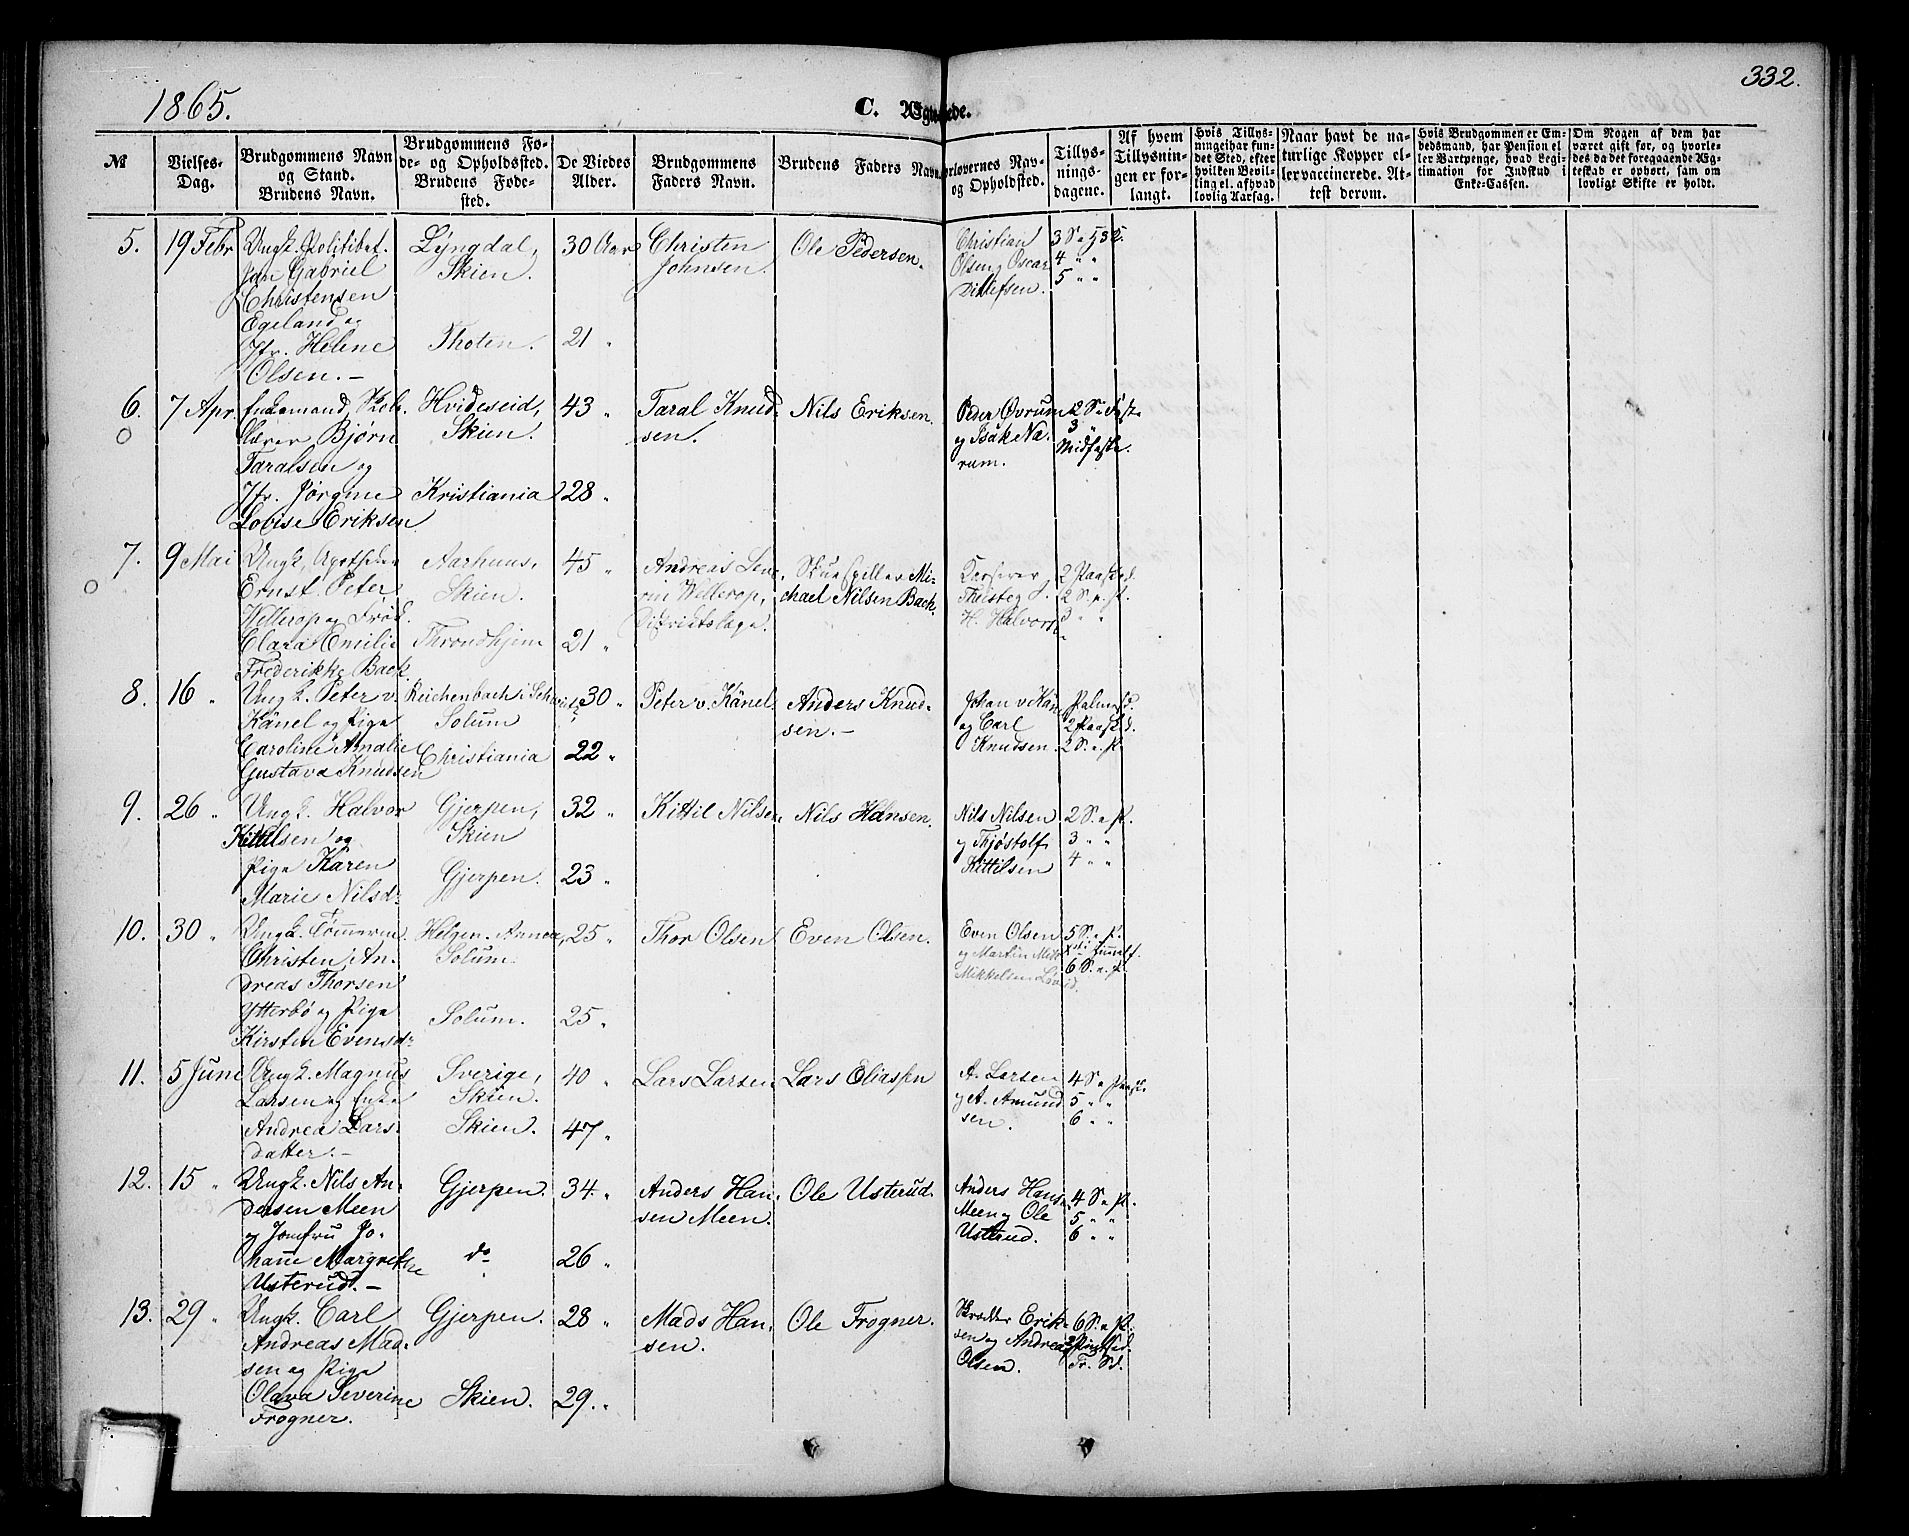 332.
1865.
C. Ægtviede.
№
Vielses-Dag.
Brudgommens Navn og Stand. Brudens Navn.
Brudgommens Føde- og Opholdssted. Brudens Fødested.
De Viedes Alder.
Brudgommens Faders Navn.
Brudens Faders Navn.
Forlovernes Navn og Opholdsted.
Tillysningsdagene.
Af hvem Tillysningen er forlangt.
Hvis Tillysning ei har fundet Sted, efter hvilken Bevilling el. afhvad lovlig Aarsag.
Naar havt de naturlige Kopper eller vaccinerede. Attest derom.
Hvis Brudgommen er Embedsmand, har Pension el ler Vartpenge, hvad Legitimation for Indskud i Enke-Cassen.
Om Nogen af dem har været gift før, og hvorledes da det foregaaende Ægteskab er ophørt, sam om lovligt Skifte er holdt.
5. 19 Febr Ungk. Politibet. Lyngdal, 30 Aar Christen Ole Pedersen. Christian 3 S.
Jan Gabriel Skien. Johnsen. Olsen og Oscar 4 " "
Christensen Ditlefsen. 5 " "
Egeland og
Jfr. Helene Thoten. 21 "
Olsen. –
6. 7 Apr. Enkemand, Skole- Hvideseid, 43 " Taral Knud- Nils Eriksen. Peder Øvrum 2 S. i Faste
lærer Bjørn Skien. sen. og Isak Na- 3 "
Taralsen og rum. Midfaste.
Jfr. Jørgine Kristiania 28 "
Lovise Eriksen
7. 9 Mai Ungk. Apotheker Aarhuus, 45 " Andreas Skuespiller Mi- 2 Paaskd.
Ernst Peter Skien. Wellerop, chael Nilsen Bach. 2 S. e. P.
Wellerop og Frøk. Districtslæge. H. Halvorsen 3 " "
Clara Emilie Throndhjem 21 "
Frederikke Back.
8. 16 " Ungk. Peter v. Reichenbach i Schweitz, 30 " Peter v. Känel. Anders Knud- Johan v Känel Palmesd.
Känel og Pige Solum sen. – og Carl 2 Paaskd.
Caroline Amalie Christiania 22 " Knudsen. 2 S. e. P.
Gustava Knudsen
9. 26 " Ungk. Halvor Gjerpen, 32 " Kittil Nilsen. Nils Hansen. Nils Nilsen 2 S. e. P.
Kittilsen og Skien og Thjøstolf 3 " "
Pige Karen Gjerpen. 23 " Kittilsen 4 " "
Marie Nilsd:
10. 30 " Ungk. Tømmerm. Helgen. Annex, 25 " Thor Olsen Even Olsen. Even Olsen 5 S. e. P.
Christen An- Solum. og Martin Xsti Himmelf.
dreas Thorsen Mikkelsen 6 S. e. P.
Ytterbö og Pige Solum. 25 "
Kirsten Evensd:
11. 5 June Ungk. Magnus Sverige, 40 " Lars Larsen. Lars Eliassen A. Larsen 4 S. e. Paask.
Larsen og Enke Skien. og A. Amund 5 " "
Andrea Lars- Skien. 47 " sen. 6 " "
datter. –
12. 15 " Ungk. Nils An- Gjerpen. 34. " Anders Han- Ole Usterud. Anders Hans. 4 S. e. P.
dersen Meen sen Meen. Meen og Ole 5 " "
og Jomfru Jo- Usterud. 6 " "
hanne Margrethe do 26 "
Usterud. –
13. 29 " Ungk. Carl Gjerpen. 28 " Mads Han- Ole Frogner. Skrædder Erik- 6 S. e. P.
Andreas Mad- sen. sen og Andreas 2 Pintsed.
sen og Pige Olsen. Tr. Sd.
Olava Severine Skien. 29. "
Frogner.